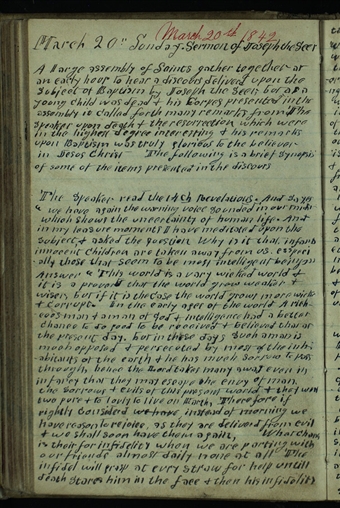 March 20th 1842
March 20th Sunday. Sermon of Joseph the Seer
A Large assembly of Saints gather together at
an early hour to hear a discours deliverd upon the
Subject of Baptism by Joseph the Seer but as a
young Child was dead & his Corpes presented in the
assembly it Called forth many remarks from the
Speaker upon death & the resurrection which were
in the highest degree interesting & his remarks
upon Baptism was truly glorious to the believer
in Jesus Christ The following is a brief Synopsis
of some of the items presented in the discours
The Speaker read the 14th Revelations. And Says
we have again the warning voice sounded in our midst
which shows the uncertainty of human life. And
in my leasure moments I have meditated upon the
Subject & asked the question Why is it that infants
innocent Children are taken away from us. especi
ally those that seem to be most intelligent beings
Answer "This world is a vary wicked world &
it is a proverb that the world grows weaker &
wiser, but if it is the case the world grows more wick
& Corrupt. In the early ages of the world A righ
eous man & a man of God & intelligence had a better
chance to do good to be received & believed than at
the present day. but in these days Such a man is
much opposed & persecuted by most of the inh
abitants of the earth & he has much sorrow to pass
through, hence the Lord takes many away even in
infancy that they may escape the envy of man,
the sorrows & evils of this present world & they were
two pure & to lovly to live on Earth, Therefore if
rightly Considerd we have instead of morning we
have reason to rejoice, as they are deliverd from evil
& we shall soon have them again, What chance
is their for infidelity when we are parting with
our friends almost daily none at all The
infidel will grasp at evry straw for help untill
death stares him in the face & then his infidelity